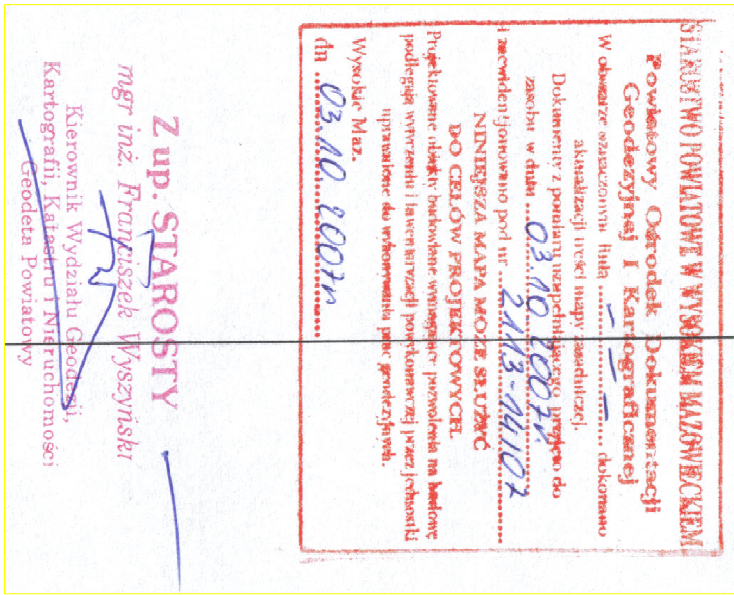 STAROSTWO POWIATOWE W WYSOKIEM MAZOWIECKIEM
Powiatowy Ośrodek Dokumentacji
Geodezyjnej i Kartograficznej
W obszarze oznaczonym linią ............ dokonano
aktualizacji treści mapy zasadniczej.
Dokumenty z pomiaru uzupełniającego przyjęto do
zasobu w dniu 03.10.2007r.
i zaewidencjonowano pod nr 2113-14/07
NINIEJSZA MAPA MOŻE SŁUŻYĆ
DO CELÓW PROJEKTOWYCH.
Projektowane obiekty budowlane wymagające pozwolenia na budowę
podlegają wytyczeniu i inwentaryzacji powykonawczej przez jednostki
uprawnione do wykonywania prac geodezyjnych.
Wysokie Maz.
dn 03.10.2007r
Z up. STAROSTY
mgr inż. Franciszek Wyszyński
Kierownik Wydziału Geodezji,
Kartografii, Katastru i Nieruchomości
Geodeta Powiatowy